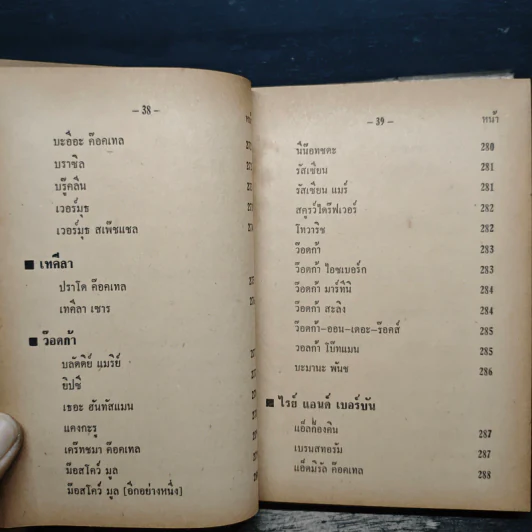 – 38 –
บะฮี๊อะ ค๊อคเทล
บราซิล
บรู๊คลิน
เวอร์มุธ
เวอร์มุธ สเพ๊ชแชล
■ เทคีลา
ปราโด ค๊อคเทล
เทคีลา เซาร
■ ว๊อดก้า
บลัดดีย์ แมรีย์
ยิปซี
เธอะ ฮันทัสแมน
แคงกะรู
เคร๊ทชมา ค๊อคเทล
ม๊อสโคว์ มูล
ม๊อสโคว์ มูล [อีกอย่างหนึ่ง]
– 39 –
หน้า
นีน๊อทชคะ 280
รัสเซียน 281
รัสเซียน แมร์ 281
สครูว์ไดร๊ฟเวอร์ 282
โทวาริช 282
ว๊อดก้า 283
ว๊อดก้า ไอซเบอร์ก 283
ว๊อดก้า มาร์ทีนิ 284
ว๊อดก้า สะลิง 284
ว๊อดก้า-ออน-เดอะ-ร๊อคส์ 285
วอลก้า โบ๊ทแมน 285
บะมานะ พันช 286
■ ไรย์ แอนด์ เบอร์บัน
แอ็ลก็องคิน 287
เบรนสทอร์ม 287
แอ็ดมิรัล ค๊อคเทล 288